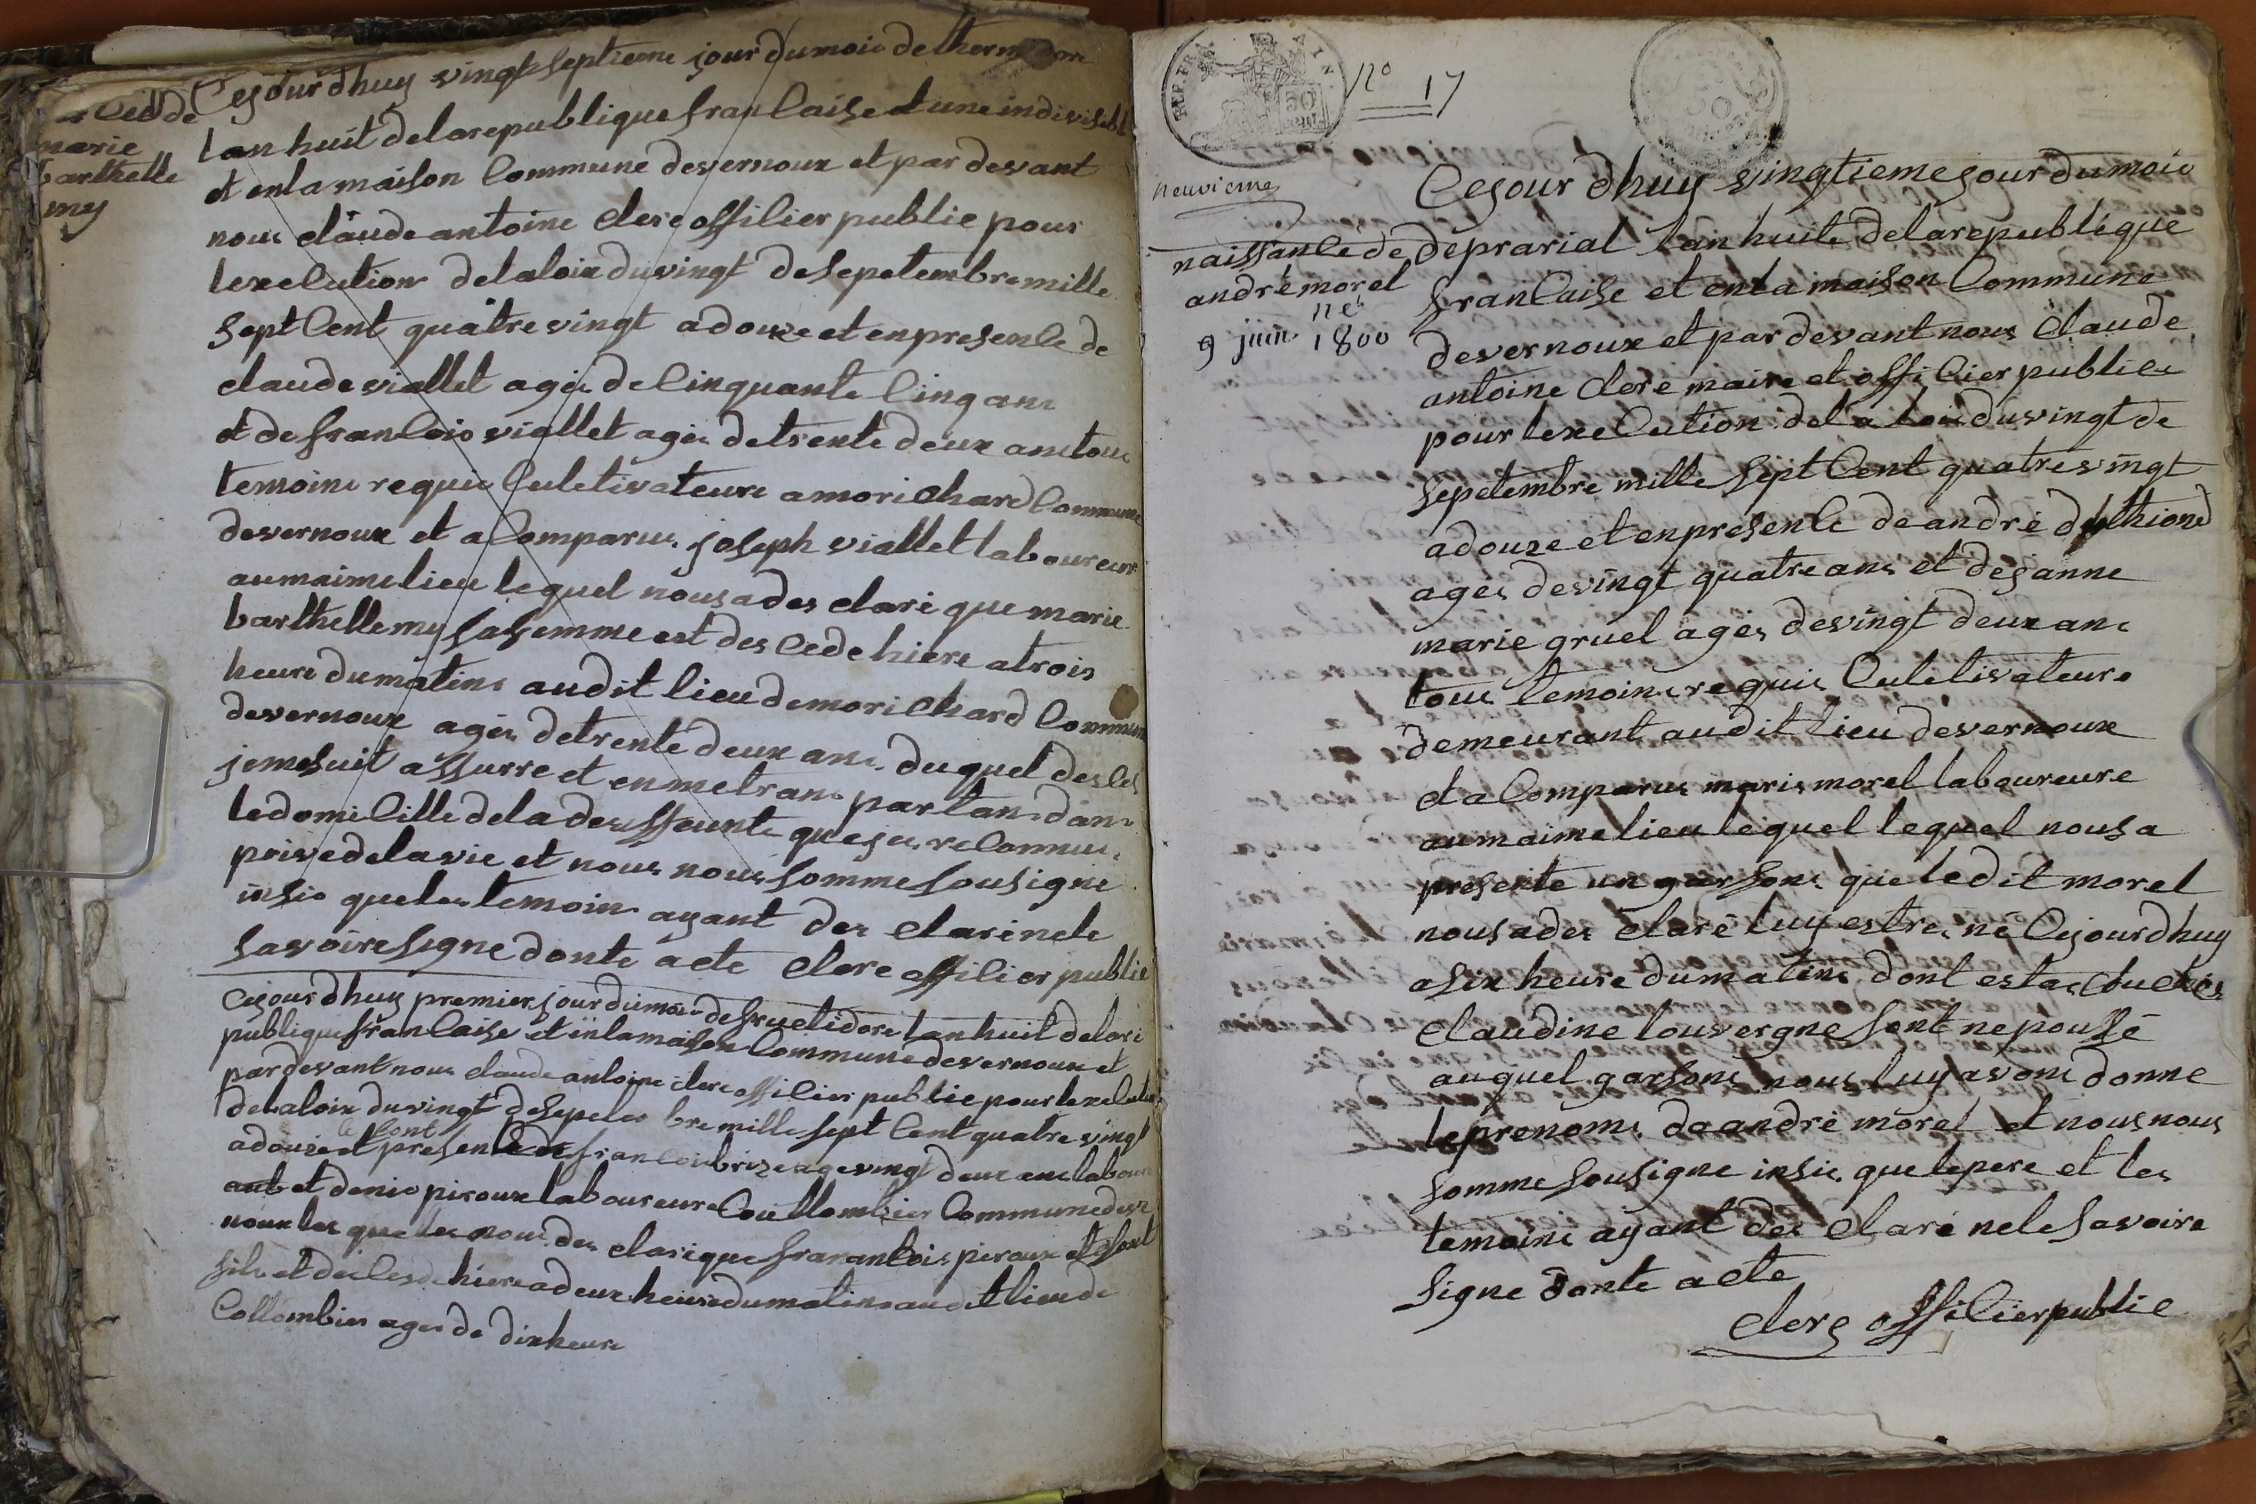 deced de
marie
barthelle
my
Cejourdhuy vingt septieme jour du moi de thermidore
lan huit delarepublique francaise et une indivisible
et enla maison Commune devernoux et par devant
nous claude antoine clerc offilier public pour
lexecution delaloix duvingt desepetembre mille
sept Cent quatre vingt adouze et enpresence de
claude viallet agée de Cinquante Cinq ans
et de francois viallet agée detrente deux ans tous
temoins requis Culetivateure amorichard Commune
devernoux et aComparus joseph viallet laboureure
aumaime lieu lequel nousades claré que marie
barthellemy safemme est des cede hiere atrois
heure dumatins audit lieu demorichard Commune
devernoux agée detrente deux ans duquel desces
jemesuit assurre et enmetrans partans dans
ledomicille dela deffeunte quejes reConnue
privedelavie et nous nous somme sousigne
insie queles temoins ayant des clarinele
savoire signe donte acte clerc offilier public
Cejourdhuy premier jour dumois defruetidore lan huit delare
publique francaise et enlamaison Commune devernoux et
pardevant nous claude antoine clerc offilier public pour lexelution
delaloix duvingt desepetes bre mille sept Cent quatre vingt
adouze et presence de francois brize age vingt deux ans laboure
et denis piroux laboureure Coullombier Commune dever
noux les quelles nous des clarique frarancois piroux et sont
fils et deces de hiere adeux heure dumatins audit lieu de
Collombier ages de dix heure
No 17
neuvieme
naissance de
andré morel
né
9 juin 1800
Cejour dhuy vingtieme jour dumois
deprarial lan huite delarepublique
francaise et enla maison Commune
devernoux et pardevant nous Claude
antoine clerc maire et officier publiec
pour lexelution dela loix duvingt de
sepetembre mille sept Cent quatrevingt
adouze et enpresence de andré duthiond
agée devingt quatre ans et dejanne
marie gruel agée devingt deux ans
tous temoins requis Culetivateure
demeurant audit lieu devernoux
et aComparus maris morel laboureure
aumaime lieu lequel lequel nousa
presente un garsons que ledit morel
nousades claré luy estre né Cejourdhuy
asix heure dumatins dont estacouchés
Claudine louvergne sont nepoussé
auquel garsons nous luy avons donne
leprenoms daandré morel et nousnous
somme sousigne insie que lepere et les
temoins ayant des claré nele savoire
signe donte acte
clerc officier public